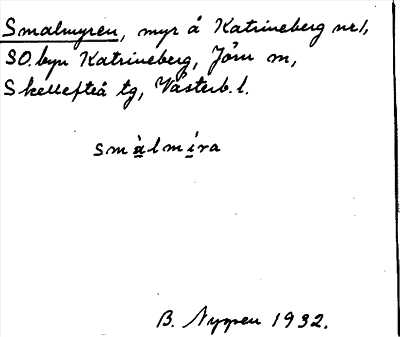 Smalmyren, myr å Katrineberg nr 1,
SO. byn Katrineberg, Jörn m,
Skellefteå tg, Västerb. l.
smàlmíra
B. Nyppen 1932.